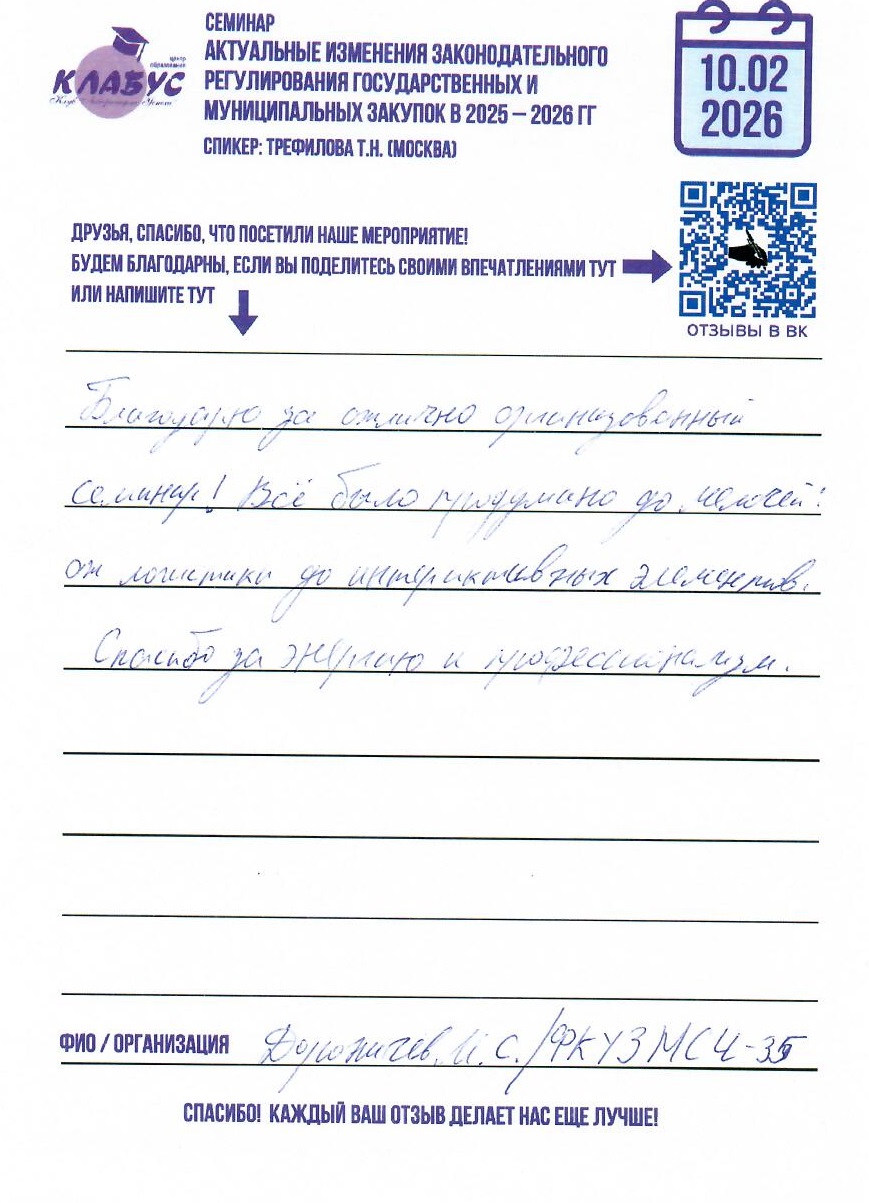 СЕМИНАР
АКТУАЛЬНЫЕ ИЗМЕНЕНИЯ ЗАКОНОДАТЕЛЬНОГО
РЕГУЛИРОВАНИЯ ГОСУДАРСТВЕННЫХ И
МУНИЦИПАЛЬНЫХ ЗАКУПОК В 2025 – 2026 ГГ
СПИКЕР: ТРЕФИЛОВА Т.Н. (МОСКВА)
центр
образования
КЛАБУС
10.02
2026
ДРУЗЬЯ, СПАСИБО, ЧТО ПОСЕТИЛИ НАШЕ МЕРОПРИЯТИЕ!
БУДЕМ БЛАГОДАРНЫ, ЕСЛИ ВЫ ПОДЕЛИТЕСЬ СВОИМИ ВПЕЧАТЛЕНИЯМИ ТУТ
ИЛИ НАПИШИТЕ ТУТ
ОТЗЫВЫ В ВК
Благодарю за отлично организованный
семинар! Всё было продумано до мелочей:
от логистики до интерактивных элементов.
Спасибо за энергию и профессионализм.
ФИО / ОРГАНИЗАЦИЯ С./ФКУЗ МСЧ-35
СПАСИБО! КАЖДЫЙ ВАШ ОТЗЫВ ДЕЛАЕТ НАС ЕЩЕ ЛУЧШЕ!